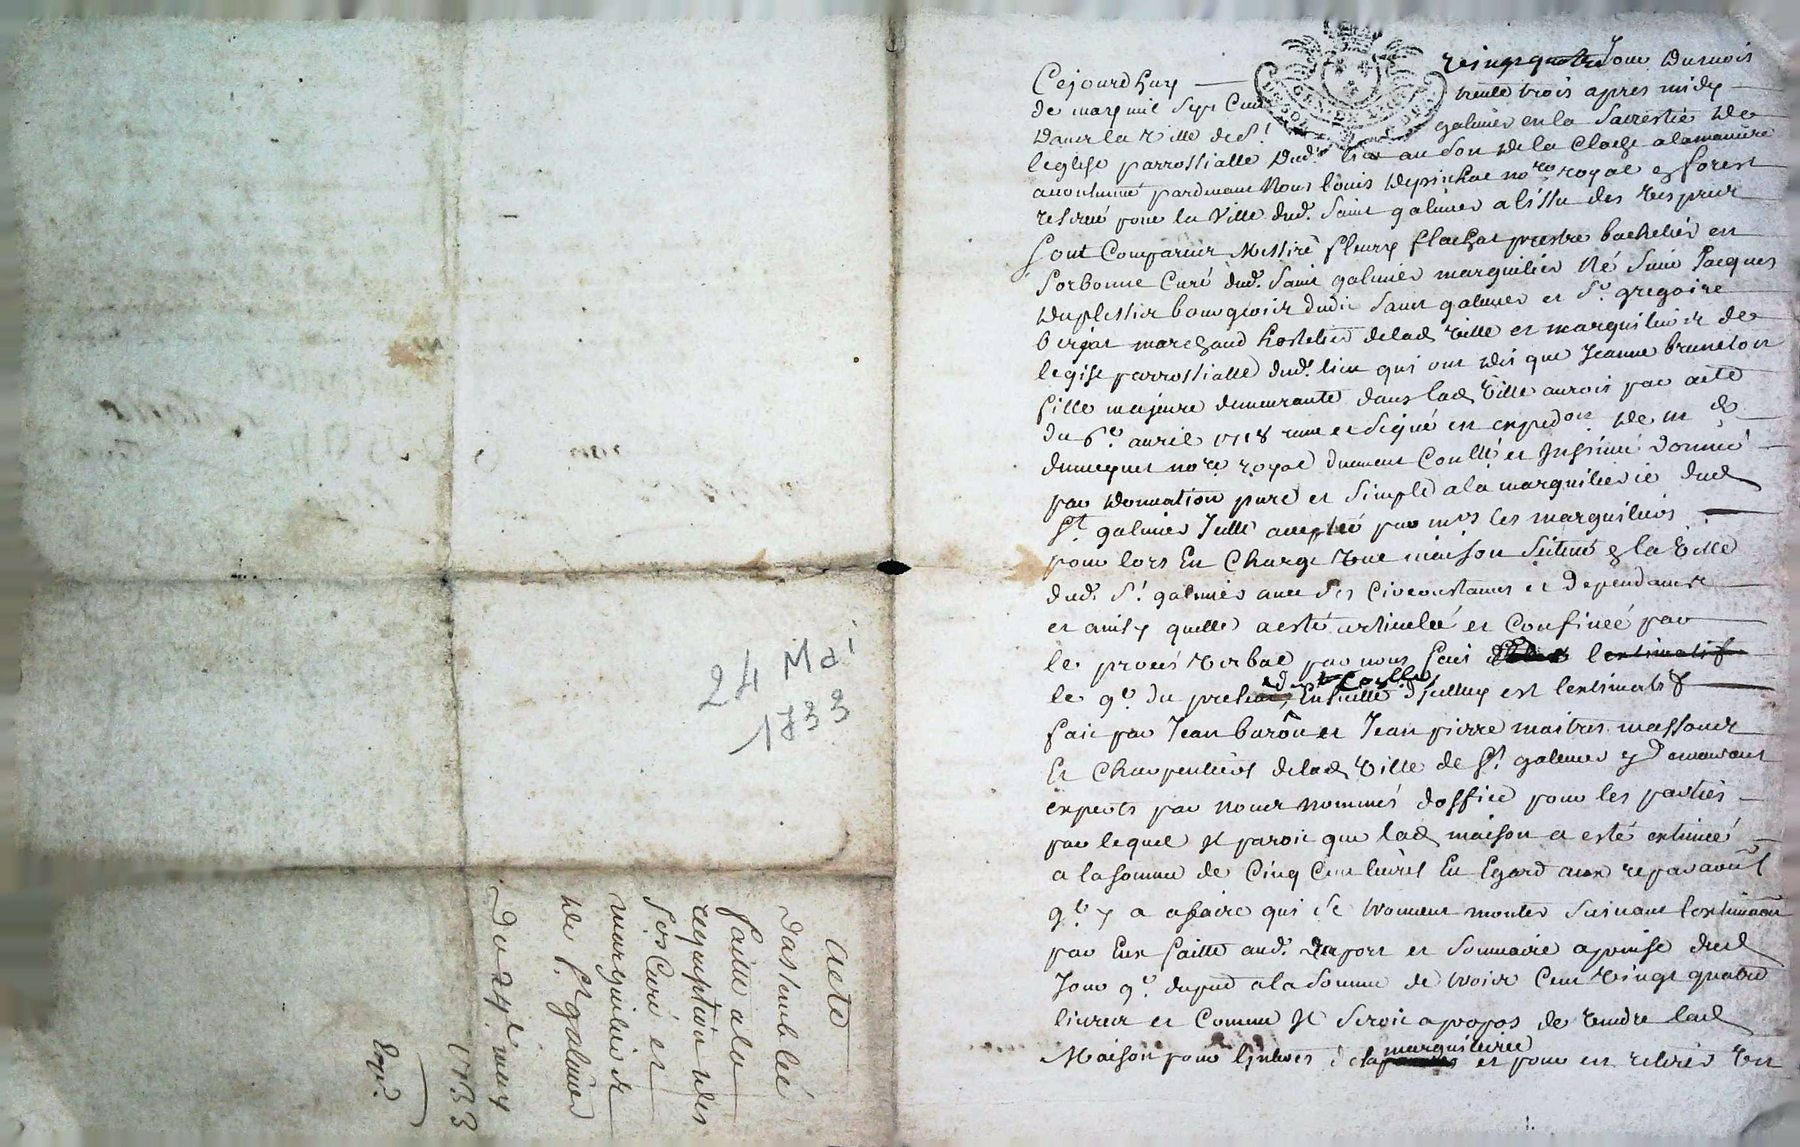 Cejourdhuy vingt quatre Jour du mois
de may mil sept Cent trente trois apres midy
dans la ville de St galmier en la Sacrestie de
leglise parrossialle dud. lieu au son de la Cloche a la maniere
accoutumé pardevant Nous louis no.re royal forest
reservé pour la Ville dud. Saint galmier a lissu des vespres
sont Comparus Messire fleury flachat prestre bachelier en
Sorbonne Curé dud. Saint galmier marguilier Né Sieur Jacques
duplessis bourgeois dudit Saint galmier et Sr. gregoire
marchand hostelier delad. ville et marguiliers de
leglise parrossialle dud. lieu qui ont dit que Jeanne bruneton
fille majeure demeurante dans lad. Ville auroit par acte
du 6e. auril 1718 receu et signé en expedon. de m
no.re royal duement Conllé et Insinué donné
par donnation pure et simple a la marguilierie dud.
St. galmier Icelle acceptée par mrs les marguiliers
pour lors En Charge une maison scituée la Ville
dud. St. galmier avec ses Circonstances et dependances
et ainsy quelle a esté articulée et Confinée par
le procés verbal par nous fait lextimatif
le 9e. du pnt Ensuitte dicelluy est lextimatif
fait par Jean barou et Jean pierre maitres massons
Et Charpentiers delad. Ville de St. galmier y demeurant
experts par nous nommés doffice pour les parties
par lequel Il paroit que lad. maison a esté extimée
a la somme de Cinq Cent livres Eu Egard aux reparaons
q.l y a a faire qui se trouvent monter suivant lextimaon
par Eux faitte aud. raport et sommaire aprise dud.
Jour 9e. du pnt a la somme de trois Cent vingt quatre
livres et Comme Il seroit apropos de vendre lad.
marguilierie
Maison pour linterest de la et pour en retirer un
24 Mai
1733
acte
dassemblée
faitte a la
requisition des
Srs Curé et
marguiliers
de St galmier
Du 24e. may
1733
Expé.